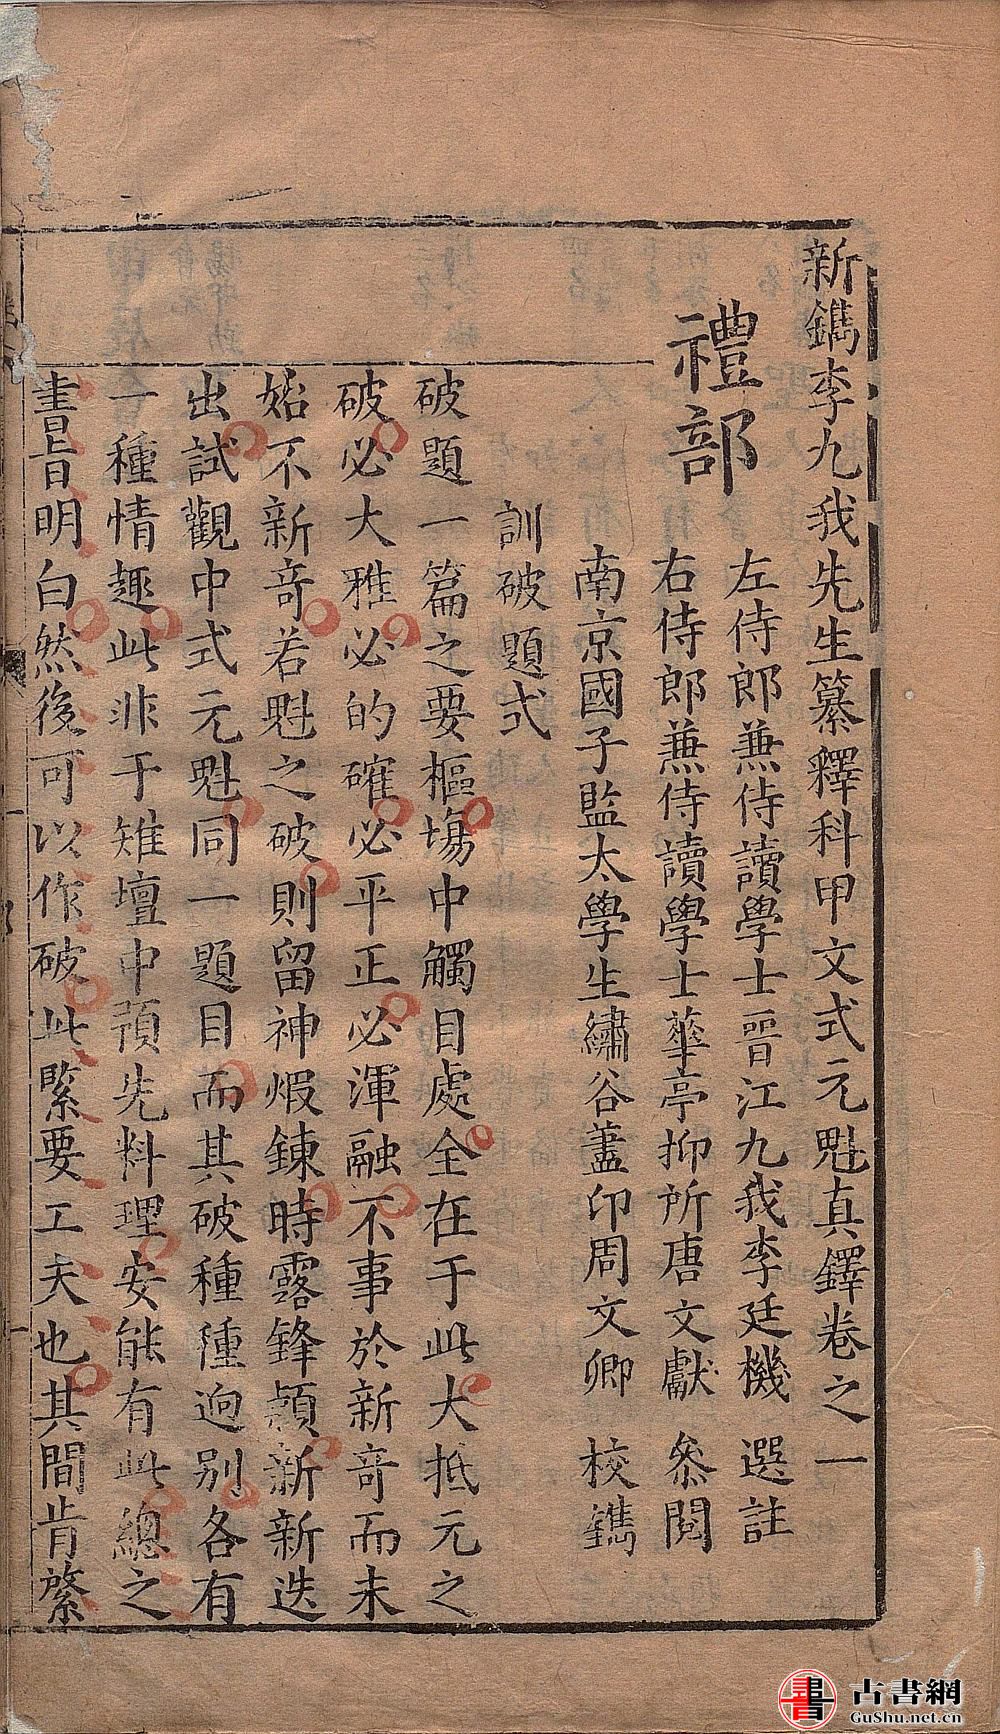 新鐫李九我先生纂釋科甲文式元魁真鐸卷之一
禮部
左侍郎兼侍讀學士晉江九我李廷機 選註
右侍郎兼侍讀學士華亭抑所唐文獻 參閱
南京國子監太學生繡谷藎印周文卿 校鐫
訓破題式
破題一篇之要樞塲中觸目處全在于此大抵元之
破必大雅必的確必平正必渾融不事於新奇而未
始不新奇若魁之破則留神煆鍊時露鋒頴新新迭
出試觀中式元魁同一題目而其破種種迥別各有
一種情趣此非于雉壇中預先料理安能有此總之
書旨明白然後可以作破此緊要工夫也其間肯綮
書 古書網
GuShu.net.cn